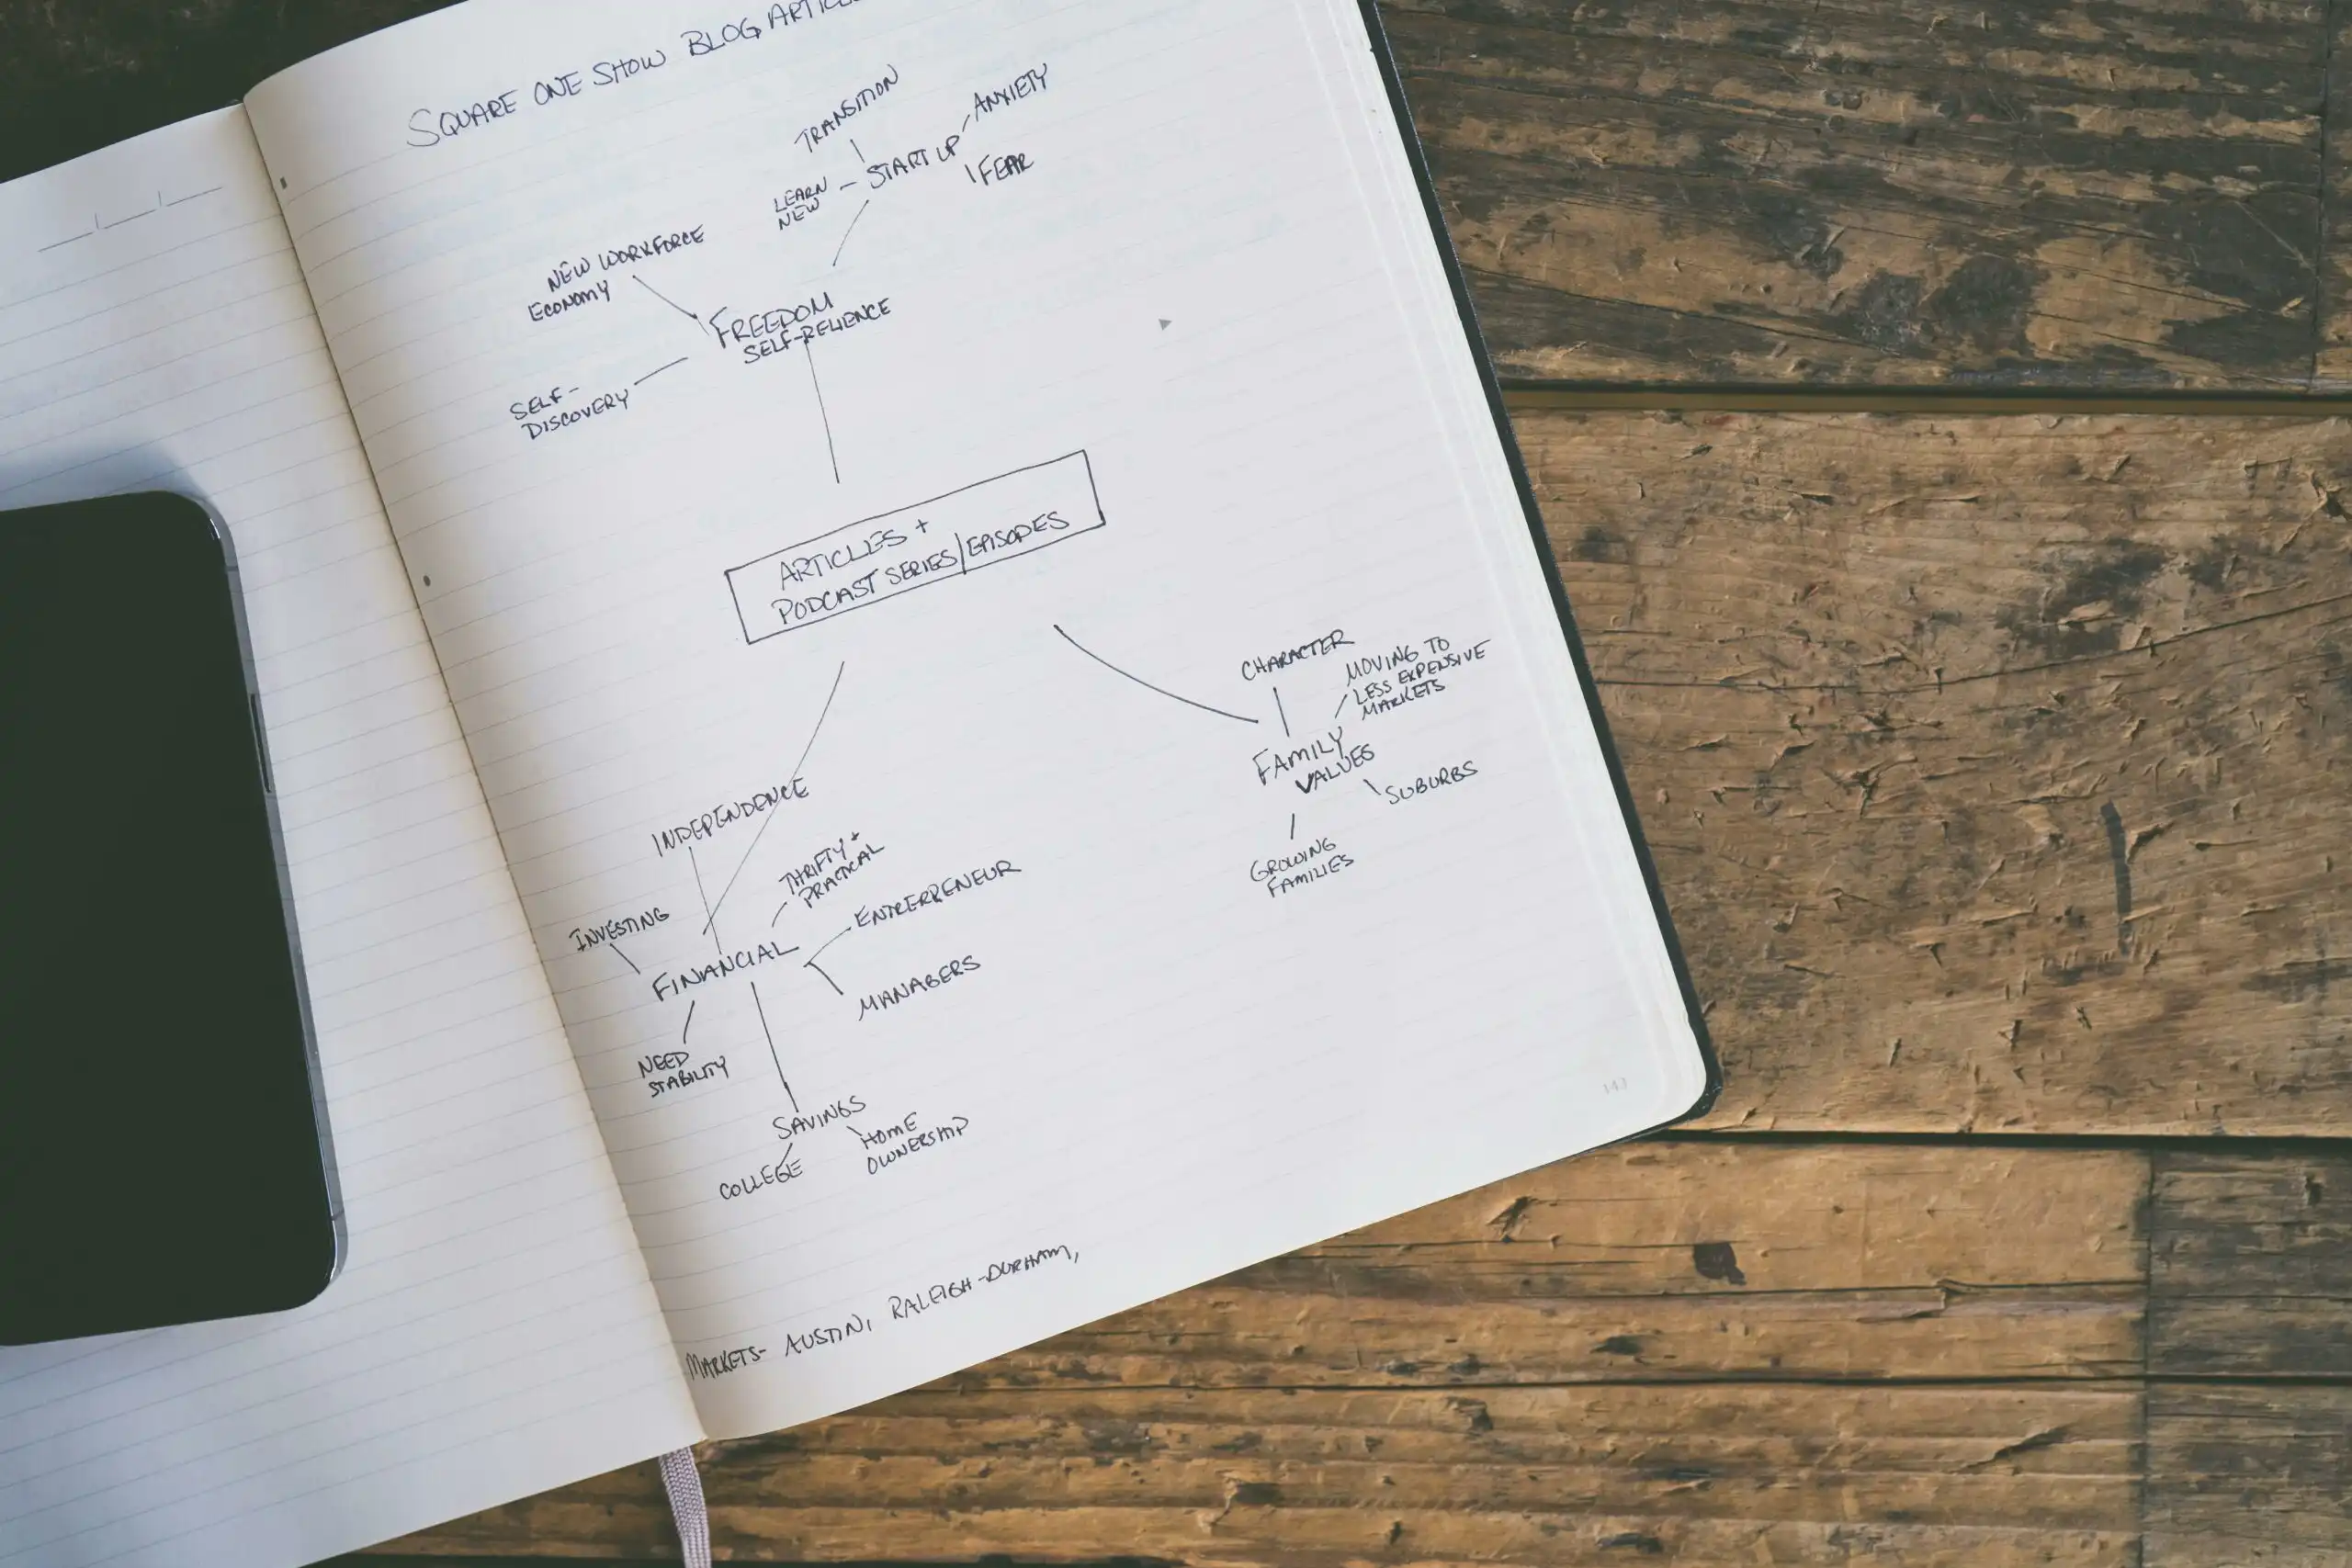 SQUARE ONE SHOW BLOG
TRANSITION
ANXIETY
START UP
FEAR
LEARN
NEW
NEW WORKFORCE
ECONOMY
FREEDOM
SELF-RELIENCE
SELF-
DISCOVERY
ARTICLES +
PODCAST SERIES/EPISODES
CHARACTER
MOVING TO
LESS EXPENSIVE
MARKETS
FAMILY
VALUES
SUBURBS
GROWING
FAMILIES
INDEPENDENCE
THRIFTY +
PRACTICAL
ENTRERPRENEUR
INVESTING
FINANCIAL
MANAGERS
NEED
STABILITY
SAVINGS
HOME
OWNERSHIP
COLLEGE
MARKETS- AUSTIN, RALEIGH-DURHAM,